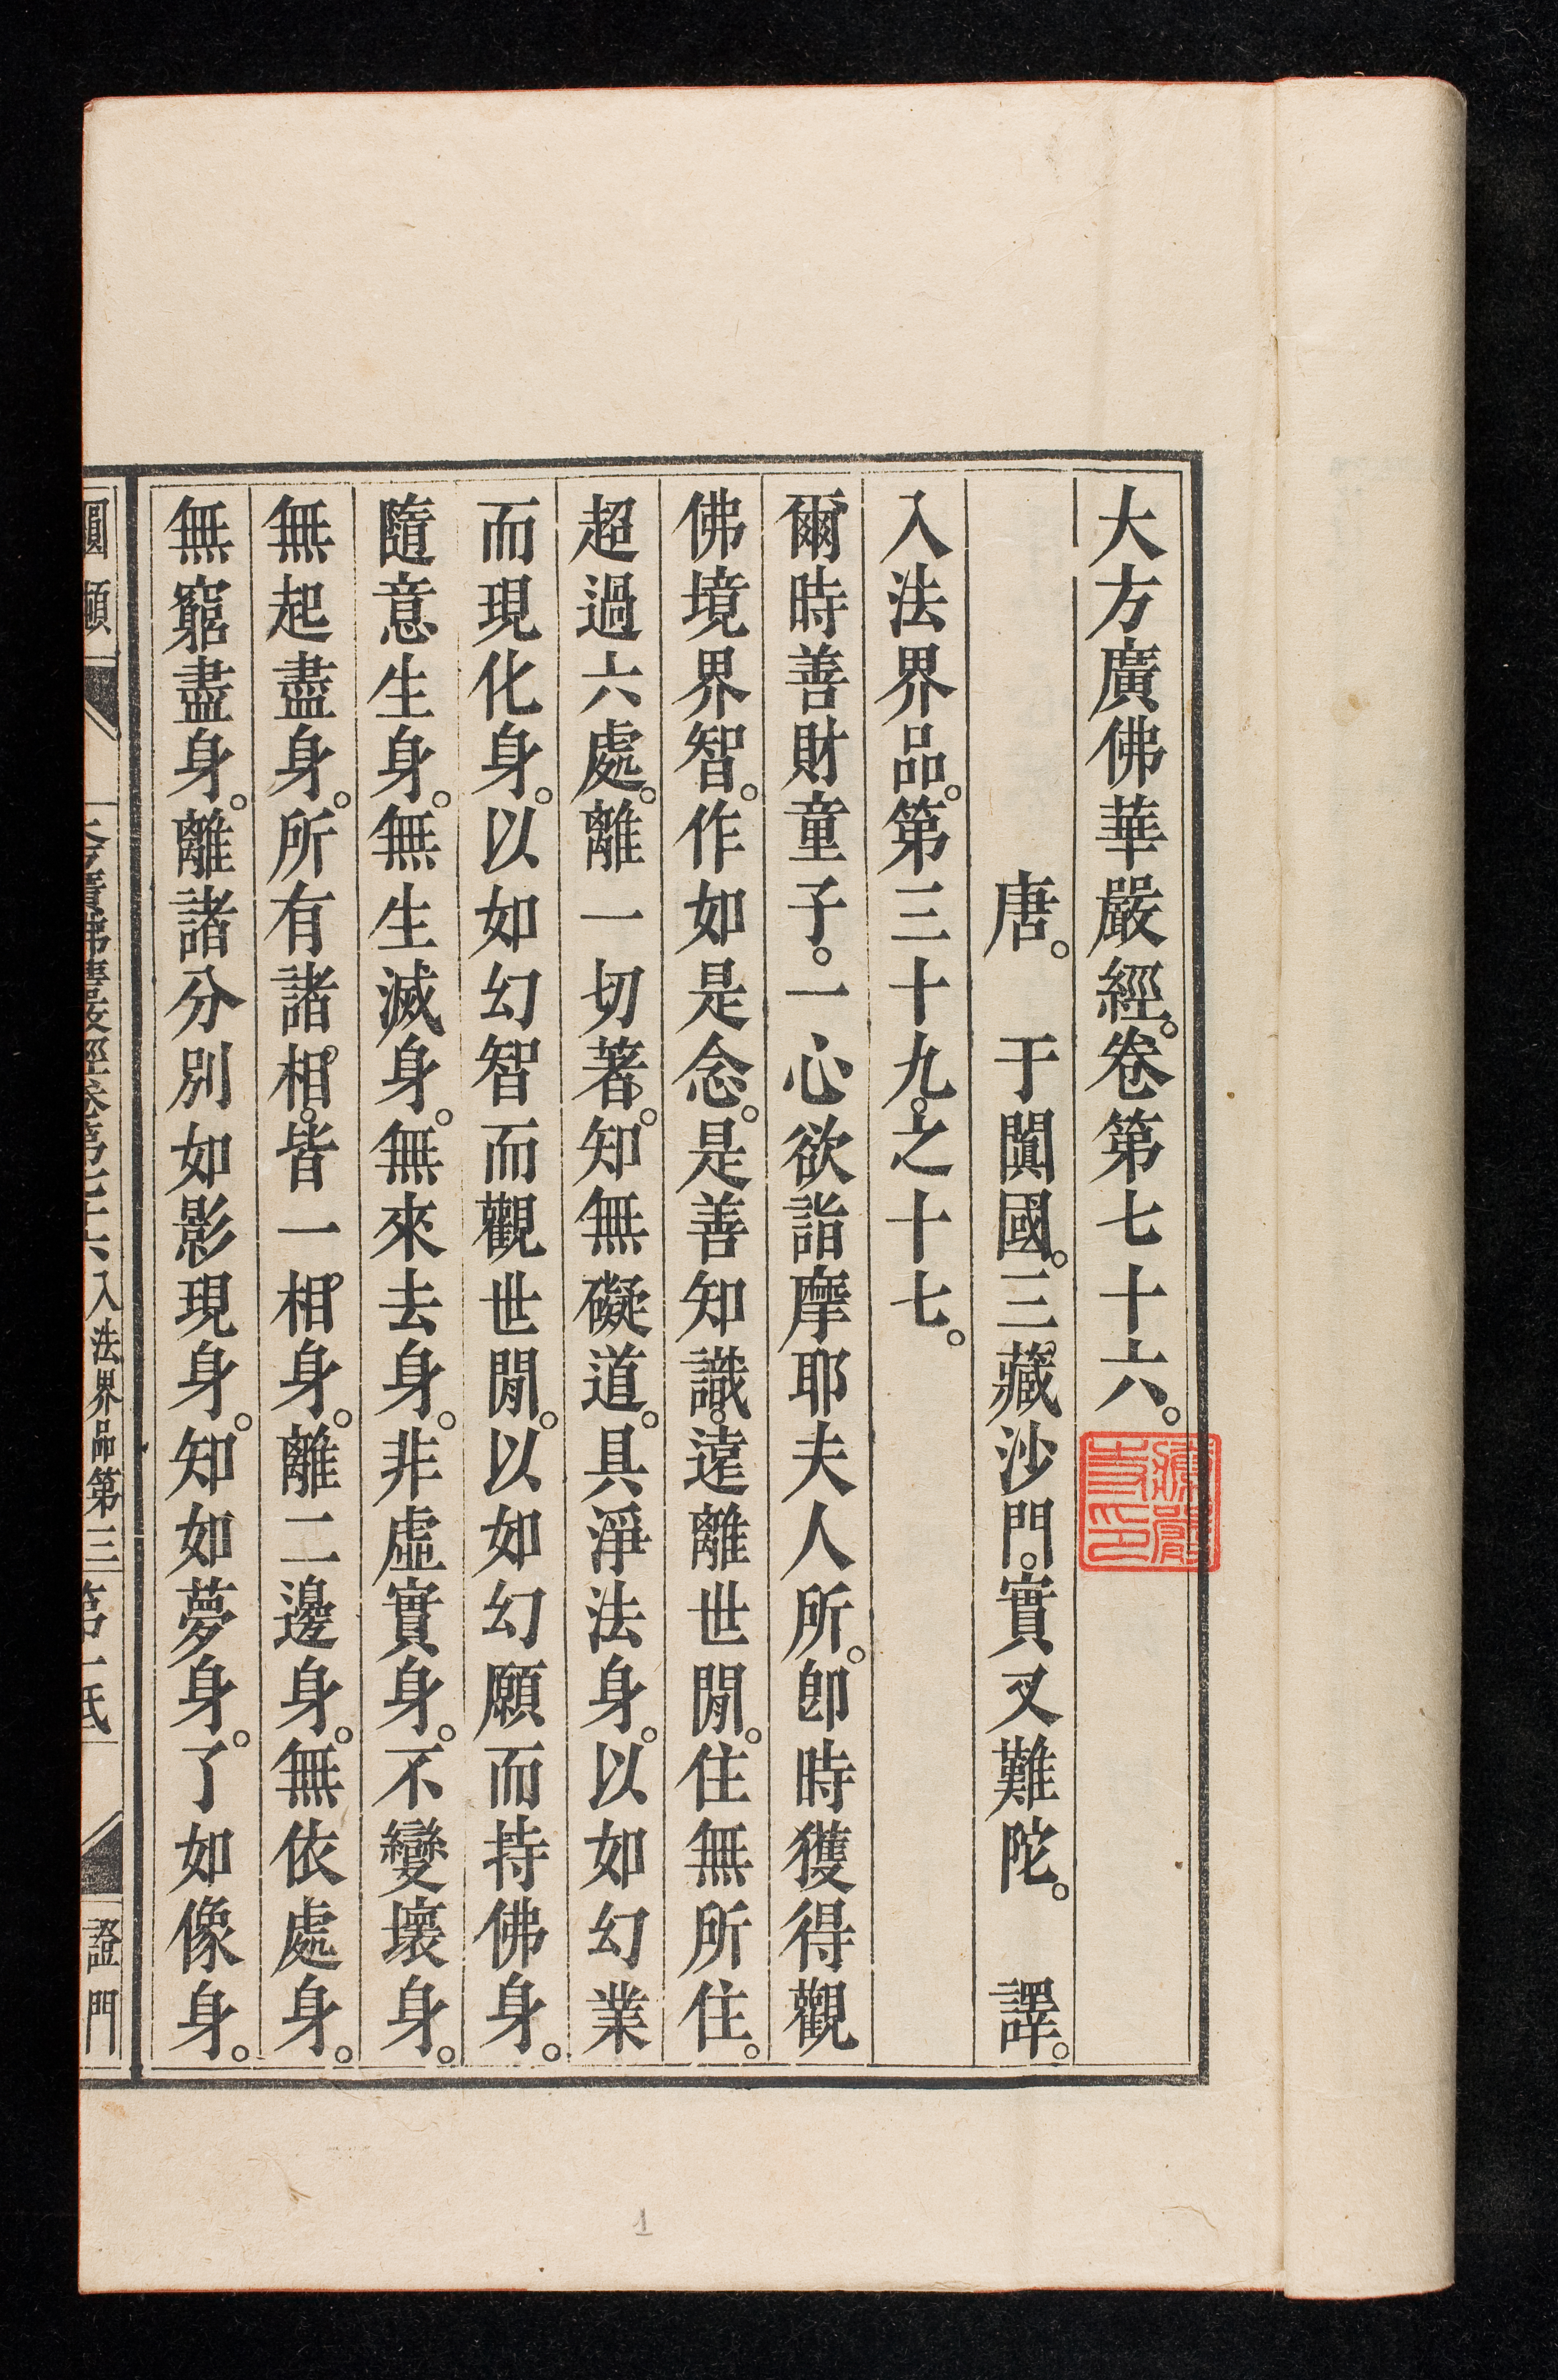 大方廣佛華嚴經。卷第七十六。
唐。 于闐國。三藏沙門。實叉難陀。 譯。
入法界品。第三十九。之十七。
爾時善財童子。一心欲詣摩耶夫人所。卽時獲得觀
佛境界智。作如是念。是善知識。遠離世閒。住無所住。
超過六處。離一切著。知無礙道。具淨法身。以如幻業
而現化身。以如幻智而觀世閒。以如幻願而持佛身。
隨意生身。無生滅身。無來去身。非虛實身。不變壞身。
無起盡身。所有諸相。皆一相身。離二邊身。無依處身。
無窮盡身。離諸分別如影現身。知如夢身。了如像身。
入法界品第三
證門
1